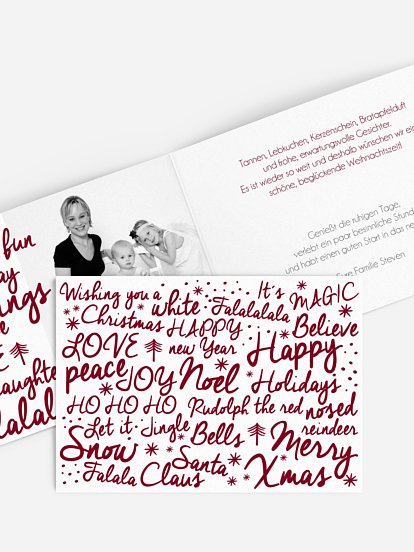 Tannen, Lebkuchen, Kerzenschein, Bratapfelduft
und frohe, erwartungsvolle Gesichter.
Es ist wieder so weit und deshalb wünschen wir ein
schöne, beglückende Weihnachtszeit!
Genießt die ruhigen Tage,
verlebt ein paar besinnliche Stunde
und habt einen guten Start in das ne
Eure Familie Steven
fun
Wishing you a white Falalalala It's MAGIC
Christmas HAPPY Believe
LOVE new Year Happy
peace JOY Noel Holidays
HO HO HO Rudolph the red nosed
Let it Jingle Bells Merry reindeer
Snow Santa Xmas
Falala Claus